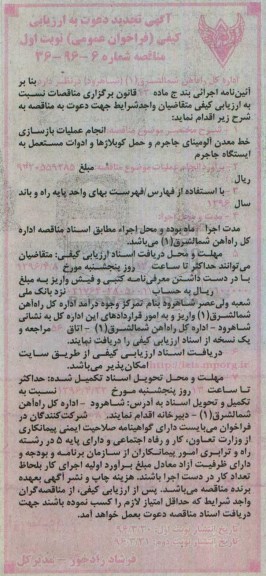 آگهی تجدید دعوت به ارزیابی
کیفی (فراخوان عمومی) نوبت اول
مناقصه شماره ۶-۹۶-۳۶
اداره کل راه‌آهن شمالشرق(۱) (شاهرود) در نظر دارد بنا بر
آئین‌نامه اجرائی بند ج ماده قانون برگزاری مناقصات نسبت
به ارزیابی کیفی متقاضیان واجدشرایط جهت دعوت به مناقصه به
شرح زیر اقدام نماید:
۱- شرح مختصر موضوع مناقصه: انجام عملیات بازسازی
خط معدن آلومینای جاجرم و حمل کوبلاژها و ادوات مستعمل به
ایستگاه جاجرم
برآورد انجام عملیات موضوع مناقصه مبلغ
ریال
با استفاده از فهارس/فهرست بهای واحد پایه راه و باند
سال ۱۳۹۶
۳- مدت و محل اجرا:
مدت اجرا ماه بوده و محل اجراء مطابق اسناد مناقصه اداره
کل راه‌آهن شمالشرق(۱) می‌باشد.
مهلت و محل دریافت اسناد ارزیابی کیفی: متقاضیان
می‌توانند حداکثر تا ساعت روز پنجشنبه مورخ
با در دست داشتن معرفی‌نامه کتبی و فیش واریز به مبلغ
ریال به حساب نزد بانک ملی
شعبه ولی‌عصر شاهرود بنام تمرکز وجوه درآمد اداره کل راه‌آهن
شمالشرق(۱) واریز و به امور قراردادهای این اداره کل به نشانی
شاهرود - اداره کل راه‌آهن شمالشرق(۱) - اتاق مراجعه و
یک نسخه از اسناد ارزیابی کیفی را دریافت نمایند.
دریافت اسناد ارزیابی کیفی از طریق سایت
امکان‌پذیر می‌باشد.
مهلت و محل تحویل اسناد تکمیل شده: حداکثر
تا ساعت روز پنجشنبه مورخ نسبت به
تکمیل و تحویل اسناد به آدرس: شاهرود - اداره کل راه‌آهن
شمالشرق(۱) - دبیرخانه اقدام نمایند. شرکت‌کنندگان در
فراخوان می‌بایست دارای گواهینامه صلاحیت ایمنی پیمانکاری
از وزارت تعاون، کار و رفاه اجتماعی و دارای پایه ۵ در رشته
راه و ترابری امور پیمانکاران از سازمان برنامه و بودجه و
دارای ظرفیت آزاد معادل مبلغ برآورد اولیه اجرای کار بلحاظ
تعداد کار در دست اجرا باشند. هزینه چاپ و نشر آگهی بعهده
برنده مناقصه می‌باشد. پس از ارزیابی کیفی، از مناقصه‌گران
واجد شرایط که حداقل امتیاز لازم را کسب نموده باشند جهت
دریافت اسناد مناقصه دعوت بعمل خواهد آمد.
فرشاد رادخور - مدیرکل